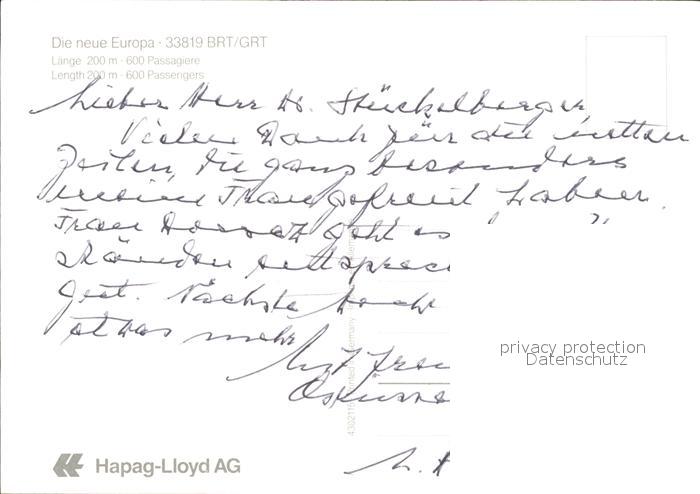 Die neue Europa · 33819 BRT/GRT
Länge 200 m · 600 Passagiere
Length 200 m · 600 Passengers
Lieber Herr Dr. Stückelberger
Vielen Dank für die netten
Zeilen, die ganz besonders
meine Frau gefreut haben.
Frau geht es
gut. Nächste
etwas mehr
Mit
privacy protection
Datenschutz
Hapag-Lloyd AG